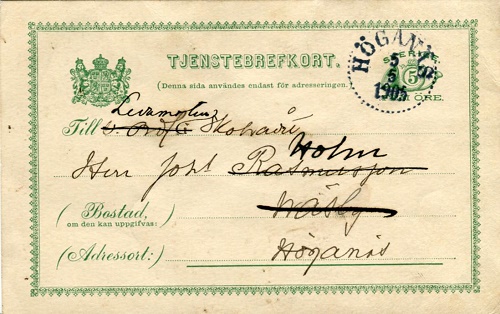 TJENSTEBREFKORT.
(Denna sida användes endast för adresseringen.)
HÖGANÄS
5
5
1905
SVERIGE
5
FEM ÖRE.
Till
Skolrådet
Holm
Herr Joh. Rasmusson
(Bostad,
om den kan uppgifvas:)
Wäsby
(Adressort:)
Höganäs